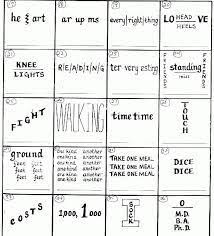 he & art
ar up ms
every|right|thing
LO HEAD VE
HEELS
KNEE
LIGHTS
R|E|A|D|I|N|G
ter very esting
FRIENDS standing FRIENDS
miss
FIGHT
WALKING
time time
TOUCH
ground
feet feet
feet feet
feet feet
one kind another
one kind another
one kind another
one kind another
one kind another
one kind another
TAKE ONE MEAL
TAKE ONE MEAL
TAKE ONE MEAL
DICE
DICE
COSTS
1,000, 1 000
O
M.D.
B.A.
Ph.D.